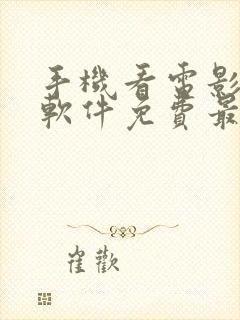 手機看電影
軟件免費最
崔歡